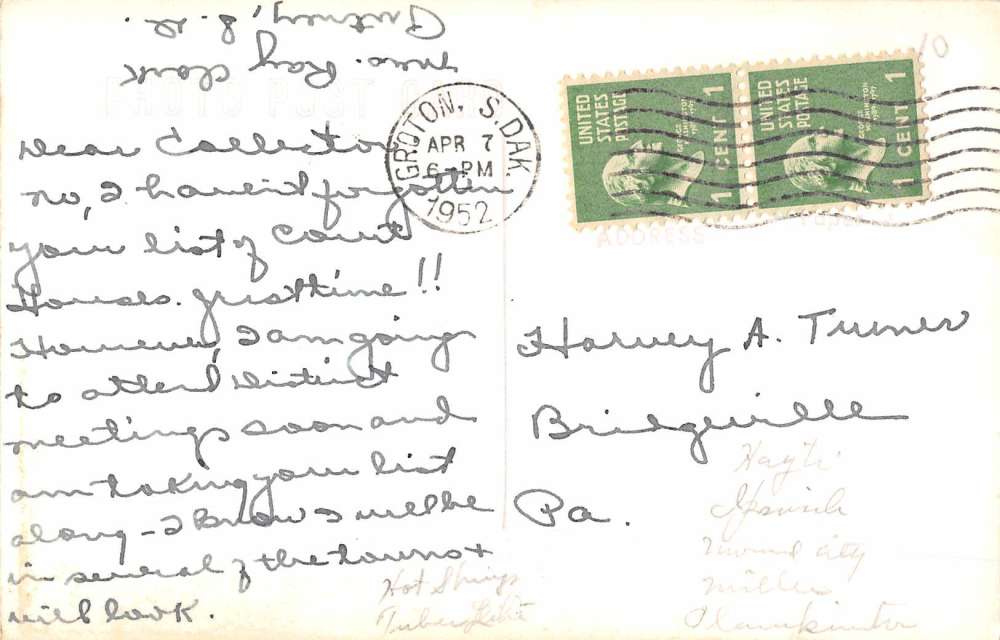 Mrs. Ray Clark
Putney, S. D.
PHOTO POST CARD
Dear Collector
No, I havent forgotten
your list of Court
Houses. Just time!!
However, I am going
to attend District
meetings soon and
am taking your list
along - I know I will be
in several of the towns &
will look.
GROTON, S. DAK
APR 7
6 - PM
1952
UNITED
STATES
POSTAGE
GEORGE
WASHINGTON
1789-1797
1 CENT 1
UNITED
STATES
POSTAGE
GEORGE
WASHINGTON
1789-1797
1 CENT 1
10
ADDRESS
Harvey A. Turner
Bridgeville
Pa.
Hayti
Ipswich
Mound City
Miller
Plankinton
Hot Springs